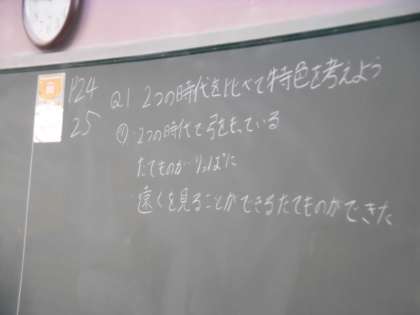 P24 Q1 2つの時代を比べて特色を考えよう
25 ① 2つの時代で弓をもっている
たてものがりっぱに
遠くを見ることができるたてものができた